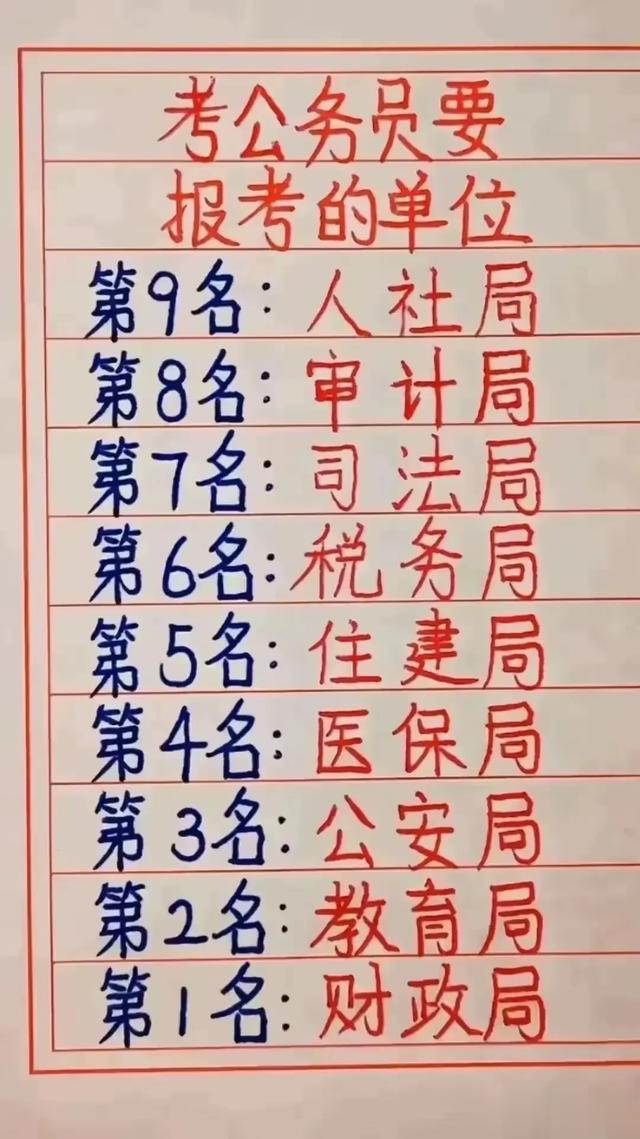 考公务员要
报考的单位
第9名:人社局
第8名:审计局
第7名:司法局
第6名:税务局
第5名:住建局
第4名:医保局
第3名:公安局
第2名:教育局
第1名:财政局